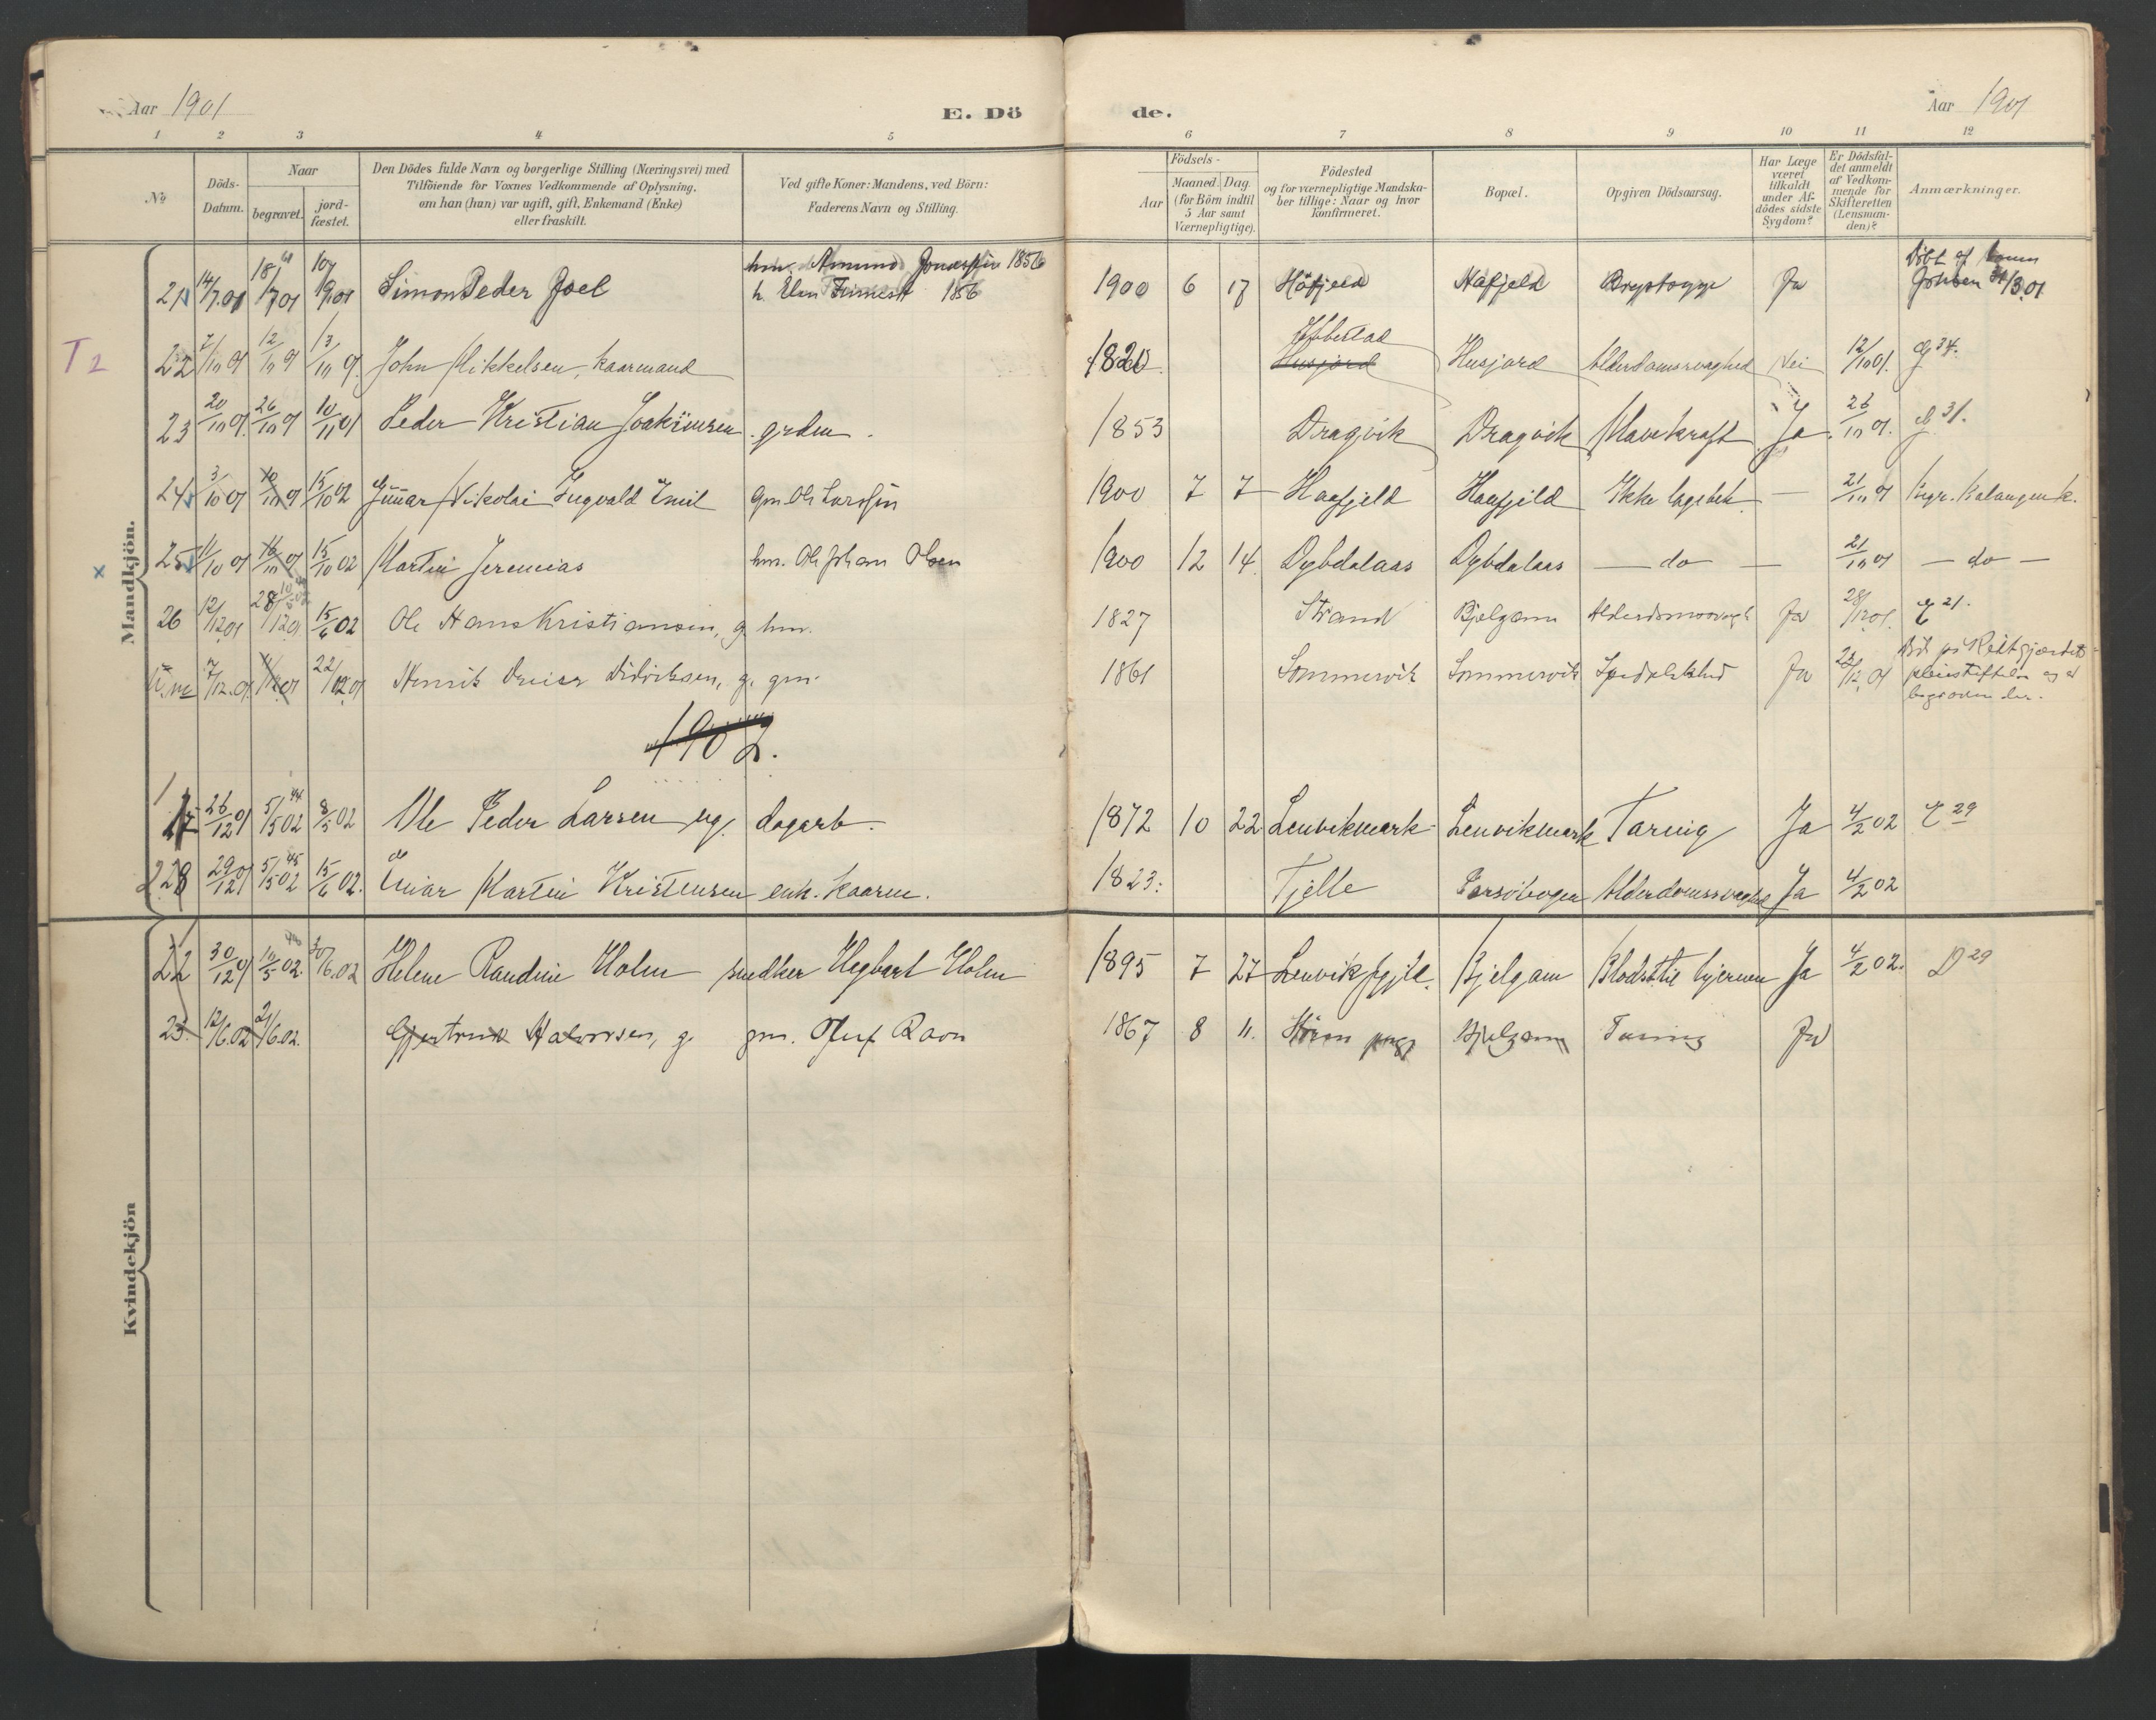 Aar 1901
E. Dö
de.
Aar 1901
1 2 3 4 5 6 7 8 9 10 11 12
No
Döds-Datum.
Naar
begravet.
jord-fæstet.
Den Dödes fulde Navn og borgerlige Stilling (Næringsvei) med
Tilföiende for Voxnes Vedkommende af Oplysning.
om han (hun) var ugift, gift, Enkemand (Enke)
eller fraskilt.
Ved gifte Koner: Mandens, ved Börn:
Faderens Navn og Stilling.
Födsels-
Aar
Maaned. Dag.
(for Börn indtil
5 Aar samt
Værnepligtige).
Födested
og for værnepligtige Mandska-
ber tillige: Naar og hvor
konfirmeret.
Bopæl.
Opgiven Dödsaarsag.
Har Læge
været
tilkaldt
under Af-
dödes sidste
Sygdom?
Er Dödsfal-
det anmeldt
af Vedkom-
mende for
Skifteretten
(Lensman-
den)?
Anmærkninger.
Mandkjön.
hm. Amund 1856
21 14/7.01 18/7 01 Simon Peder Joel h. Elen 1856 1900 6 17 Höfjeld Höfjeld Ja
T2
Ibbestad
22 12/10 01 13/10 01 John Mikkelsen, kaarmand Husjord Husjord Alderdomssvaghed Nei 12/10 01. 34.
23 20/10 01 26/10 01 10/11 01 Peder Kristian Joakimsen grdm. 1853 Dragvik Dragvik Mavekræft Ja 26/10 01. 31.
24 3/10 01 10/10 01 15/10 02 Nikolai Ingvald Emil gm. Ole 1900 7 7 Haafjeld Haafjeld Ikke lægebeh. — 21/10 01
25 11/10 01 16/10 01 15/10 02 Martin Jeremias hm. Ole Johan Olsen 1900 12 14. Dybdalaas Dybdalaas — do — — 21/10 01 — do —
x
26 12/12 01 28/12 01 15/6 02 Ole Hans Kristiansen, g hm. 1827 Strand Bjelgam Ja 28/12 01. 21.
7/12.01 22/12 01 Henrik Didriksen, g. gm. 1861 Sommervik Sommervik Ja
pleiestiftelse og er
begraven der.
1902.
26/12 01 5/5 02 44 8/5 02 Ole Peder Larsen ug. dagarb. 1872 10 22 Lenvikmark Lenvikmark Tæring Ja 4/2 02 E 29
28 29/12 01 5/5 02 45 15/6 02. Einar Martin Kristensen enk. kaarm. 1823. Tjelle Alderdomssvaghed Ja 4/2 02
Kvindekjön
22 30/12 01 10/5 02. Helene Randine Holm snedker Hegbart Holm 1895 7 27 Bjelgam Ja 4/2 02. D 29
23. 12/6.02 21/6.02. Gjertrud Halvorsen, g. gm. Oluf Ravn 1867 8 11. Bjelgam Tæring Ja